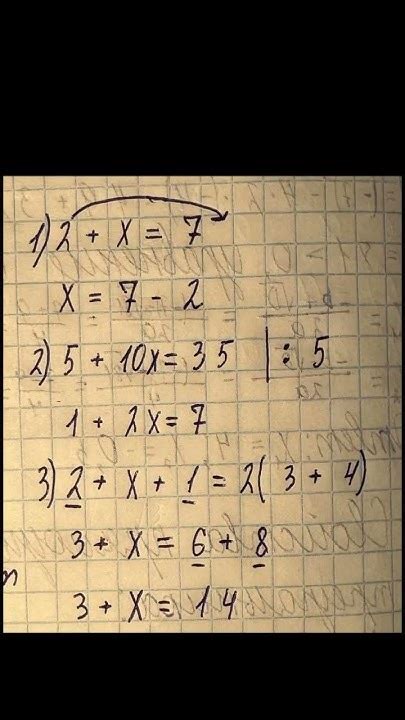 1) 2 + x = 7
x = 7 - 2
2) 5 + 10x = 35 | : 5
1 + 2x = 7
3) 2 + x + 1 = 2( 3 + 4)
3 + x = 6 + 8
3 + x = 14